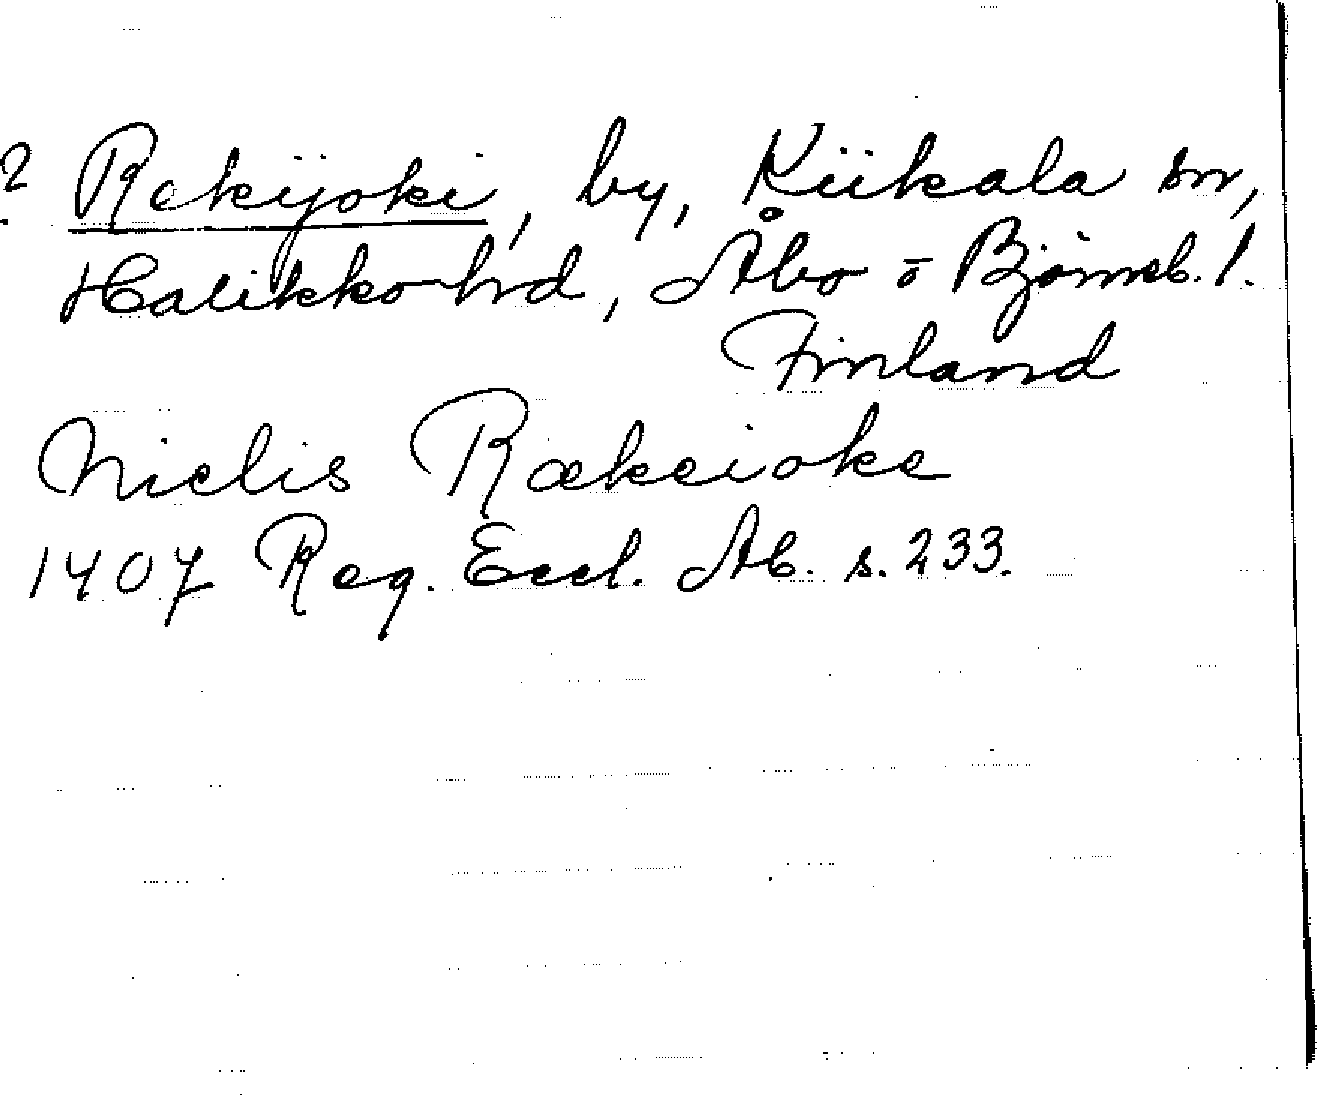 ? Rekijoki, by, Kiikala sn,
Halikko hrd, Åbo o Björneb. l.
Finland
Nielis Rækeioke
1407 Reg. Eccl. Ab. s. 233.